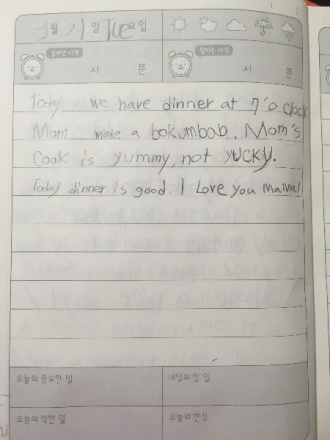 3월 21일 Tue요일
일어난 시각 잠자는 시각
시 분 시 분
Today we have dinner at 7'o clock
Mom make a bokumbob. Mom's
Cook is yummy, not yucky.
Today dinner is good. I Love you Mama!
오늘의 중요한 일 내일의 할 일
오늘의 착한 일 오늘의 반성